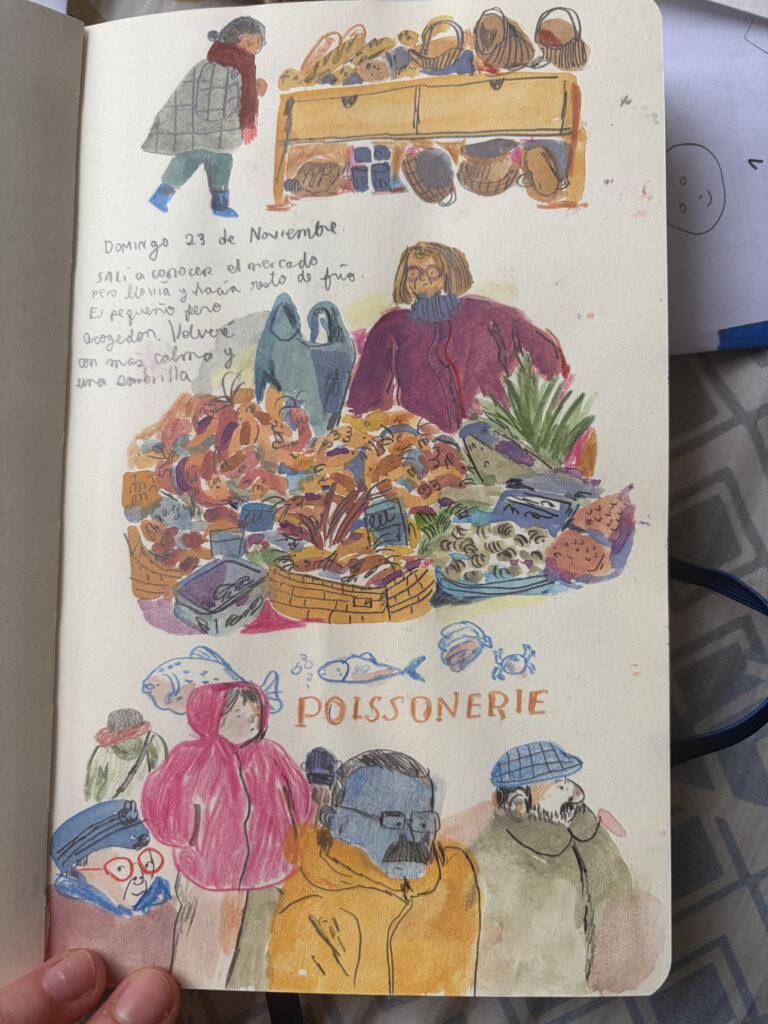 DOMINGO 23 de Noviembre.
SALí a conocer el mercado
pero llovía y hacía resto de frío.
Es pequeño pero
acogedor. Volveré
con más calma y
una sombrilla
POISSONERIE